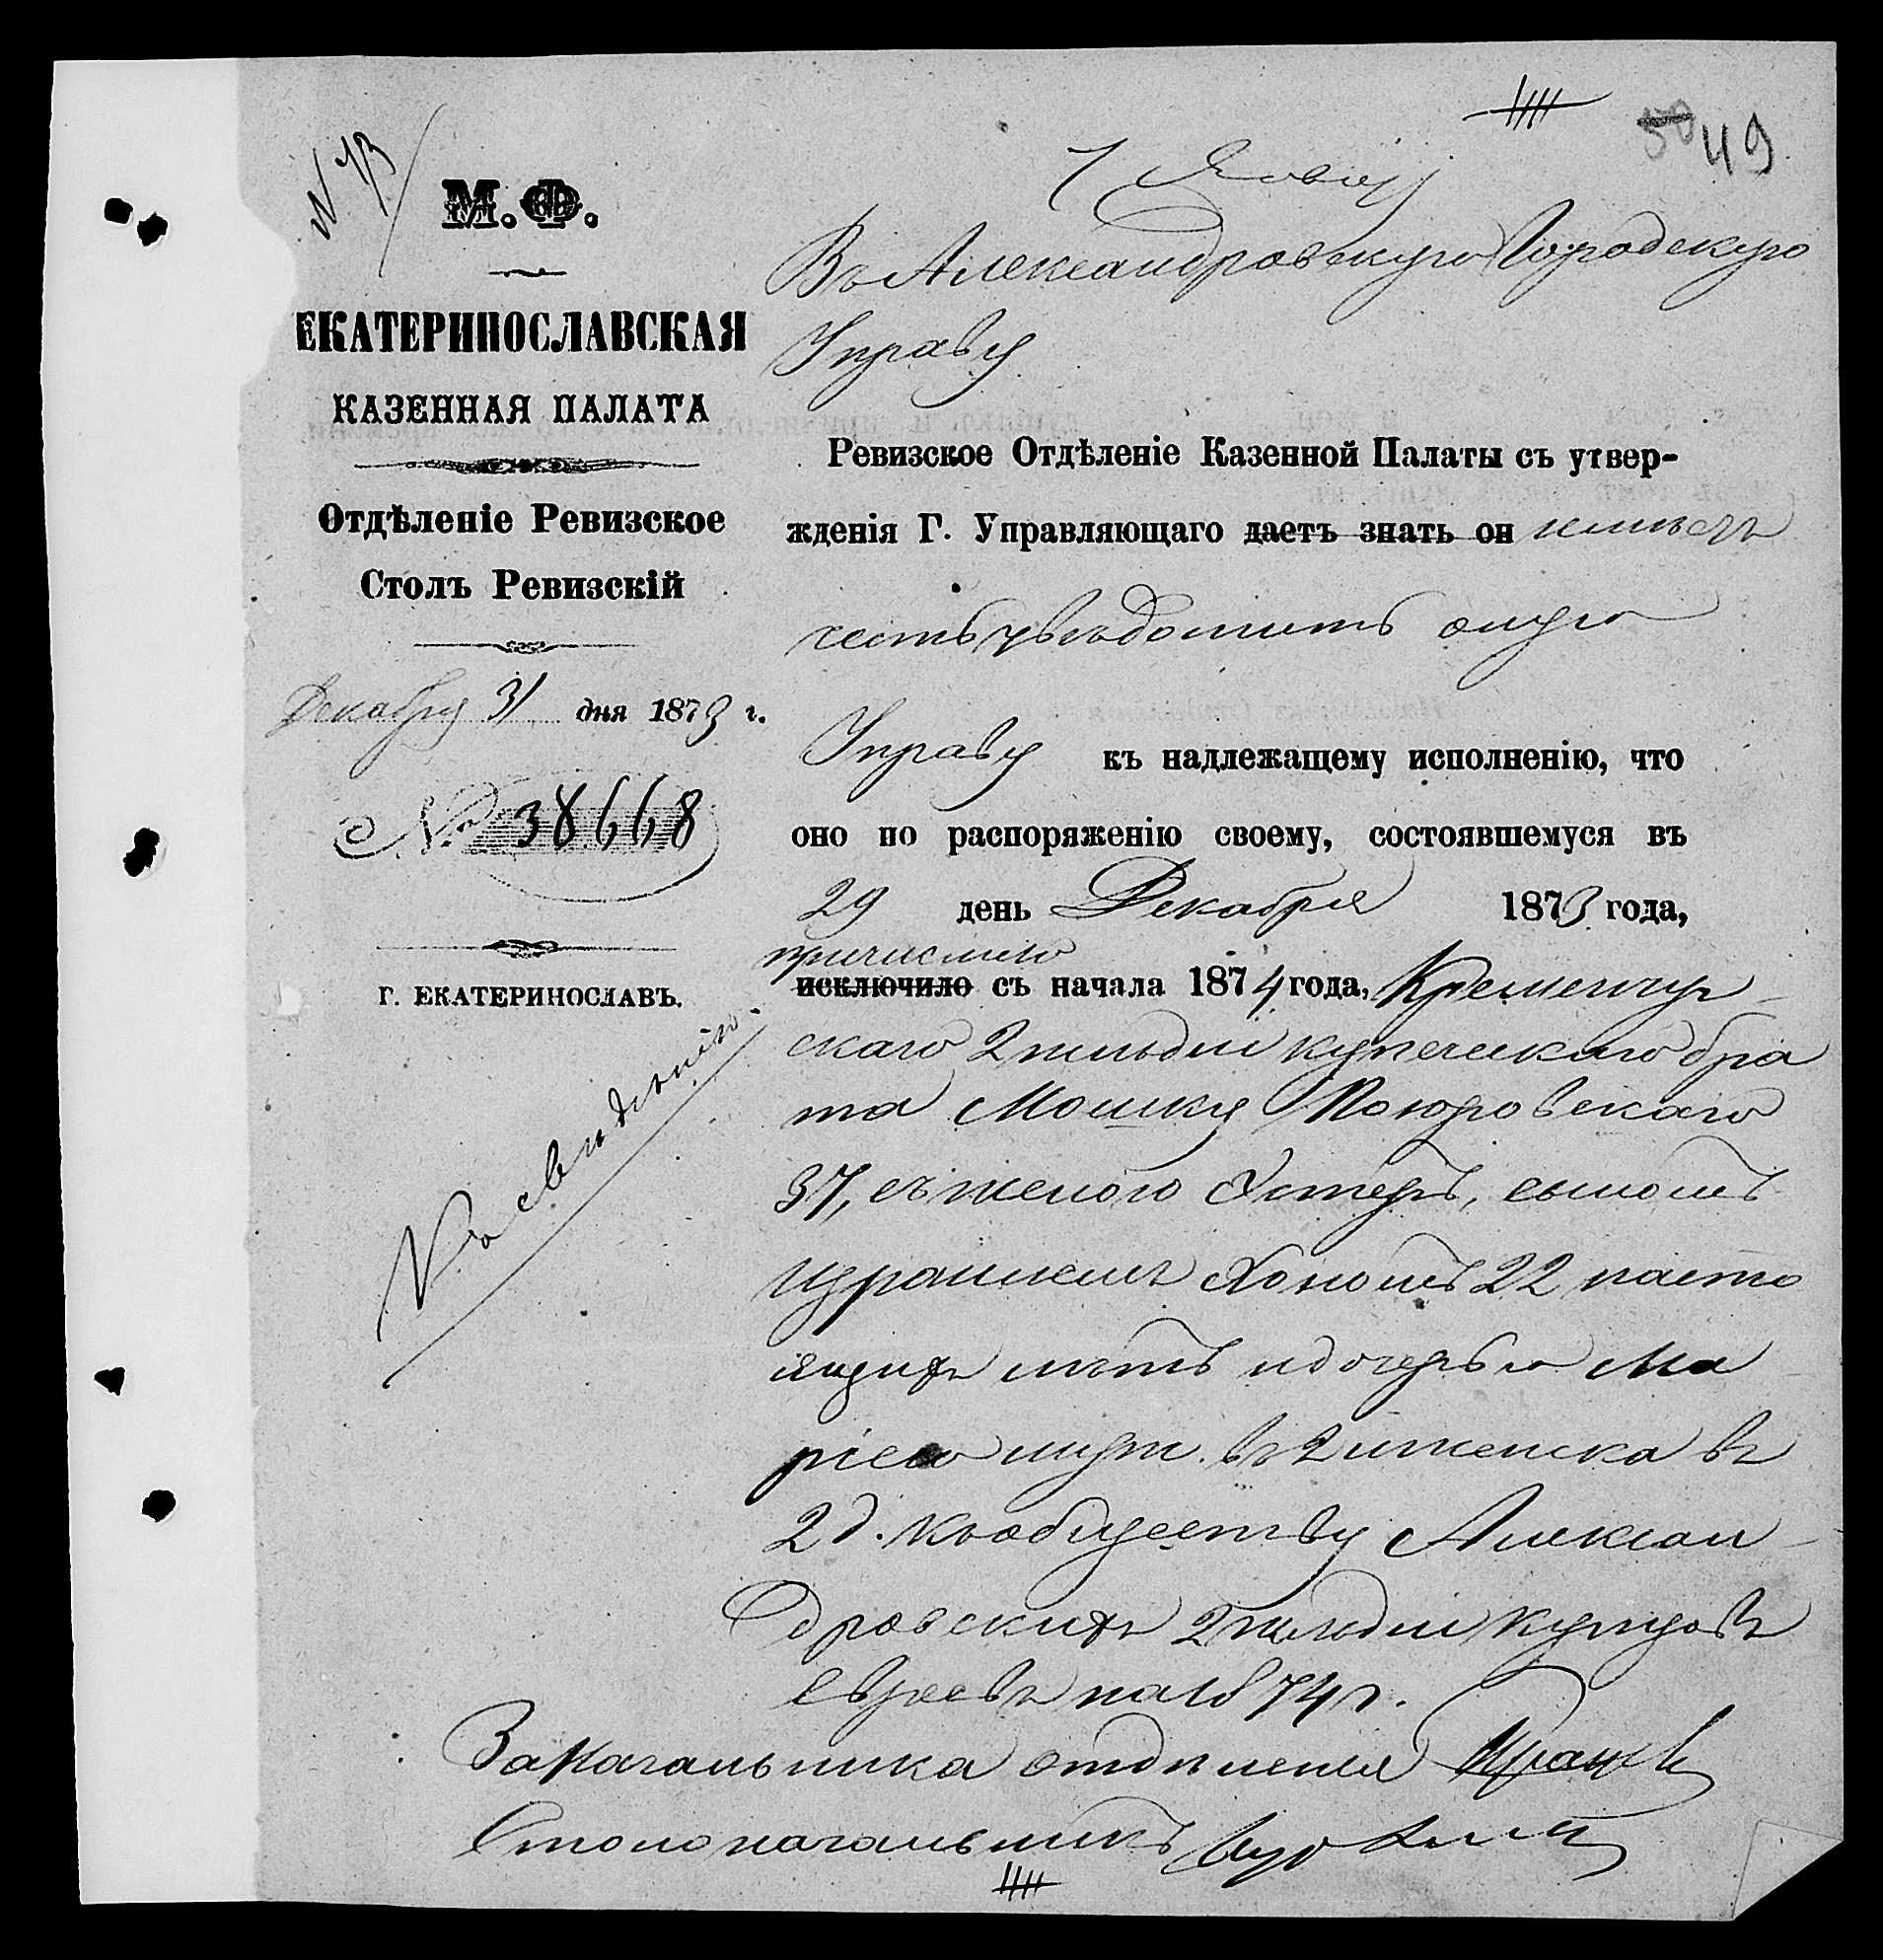 50 49
М.Ф.
ЕКАТЕРИНОСЛАВСКАЯ
КАЗЕННАЯ ПАЛАТА
Отдѣленіе Ревизское
Столъ Ревизскій
Декабря 31 дня 1873 г.
№ 38668
г. ЕКАТЕРИНОСЛАВЪ.
Къ свѣдѣнію.
Въ Александровскую Городскую
Управу
Ревизское Отдѣленіе Казенной Палаты съ утвер-
жденія Г. Управляющаго даетъ знать он имѣетъ
честь увѣдомить оную
Управу къ надлежащему исполненію, что
оно по распоряженію своему, состоявшемуся въ
29 день Декабря 1873 года,
причислило
исключило съ начала 1874 года, Кременчуг-
скаго 2 гильдіи купеческаго бра
та Мошку
37, съ женою Эстеръ, сыномъ
Израилемъ Хономъ 22 насто
ящихъ лѣтъ и дочерью Ма
ріею муж. въ 2 и женска въ
2 д. къ обществу Алексан-
дровскихъ 2 гильдіи купцовъ
евреевъ на 1874 г.
За Начальника отдѣленія
Столоначальникъ